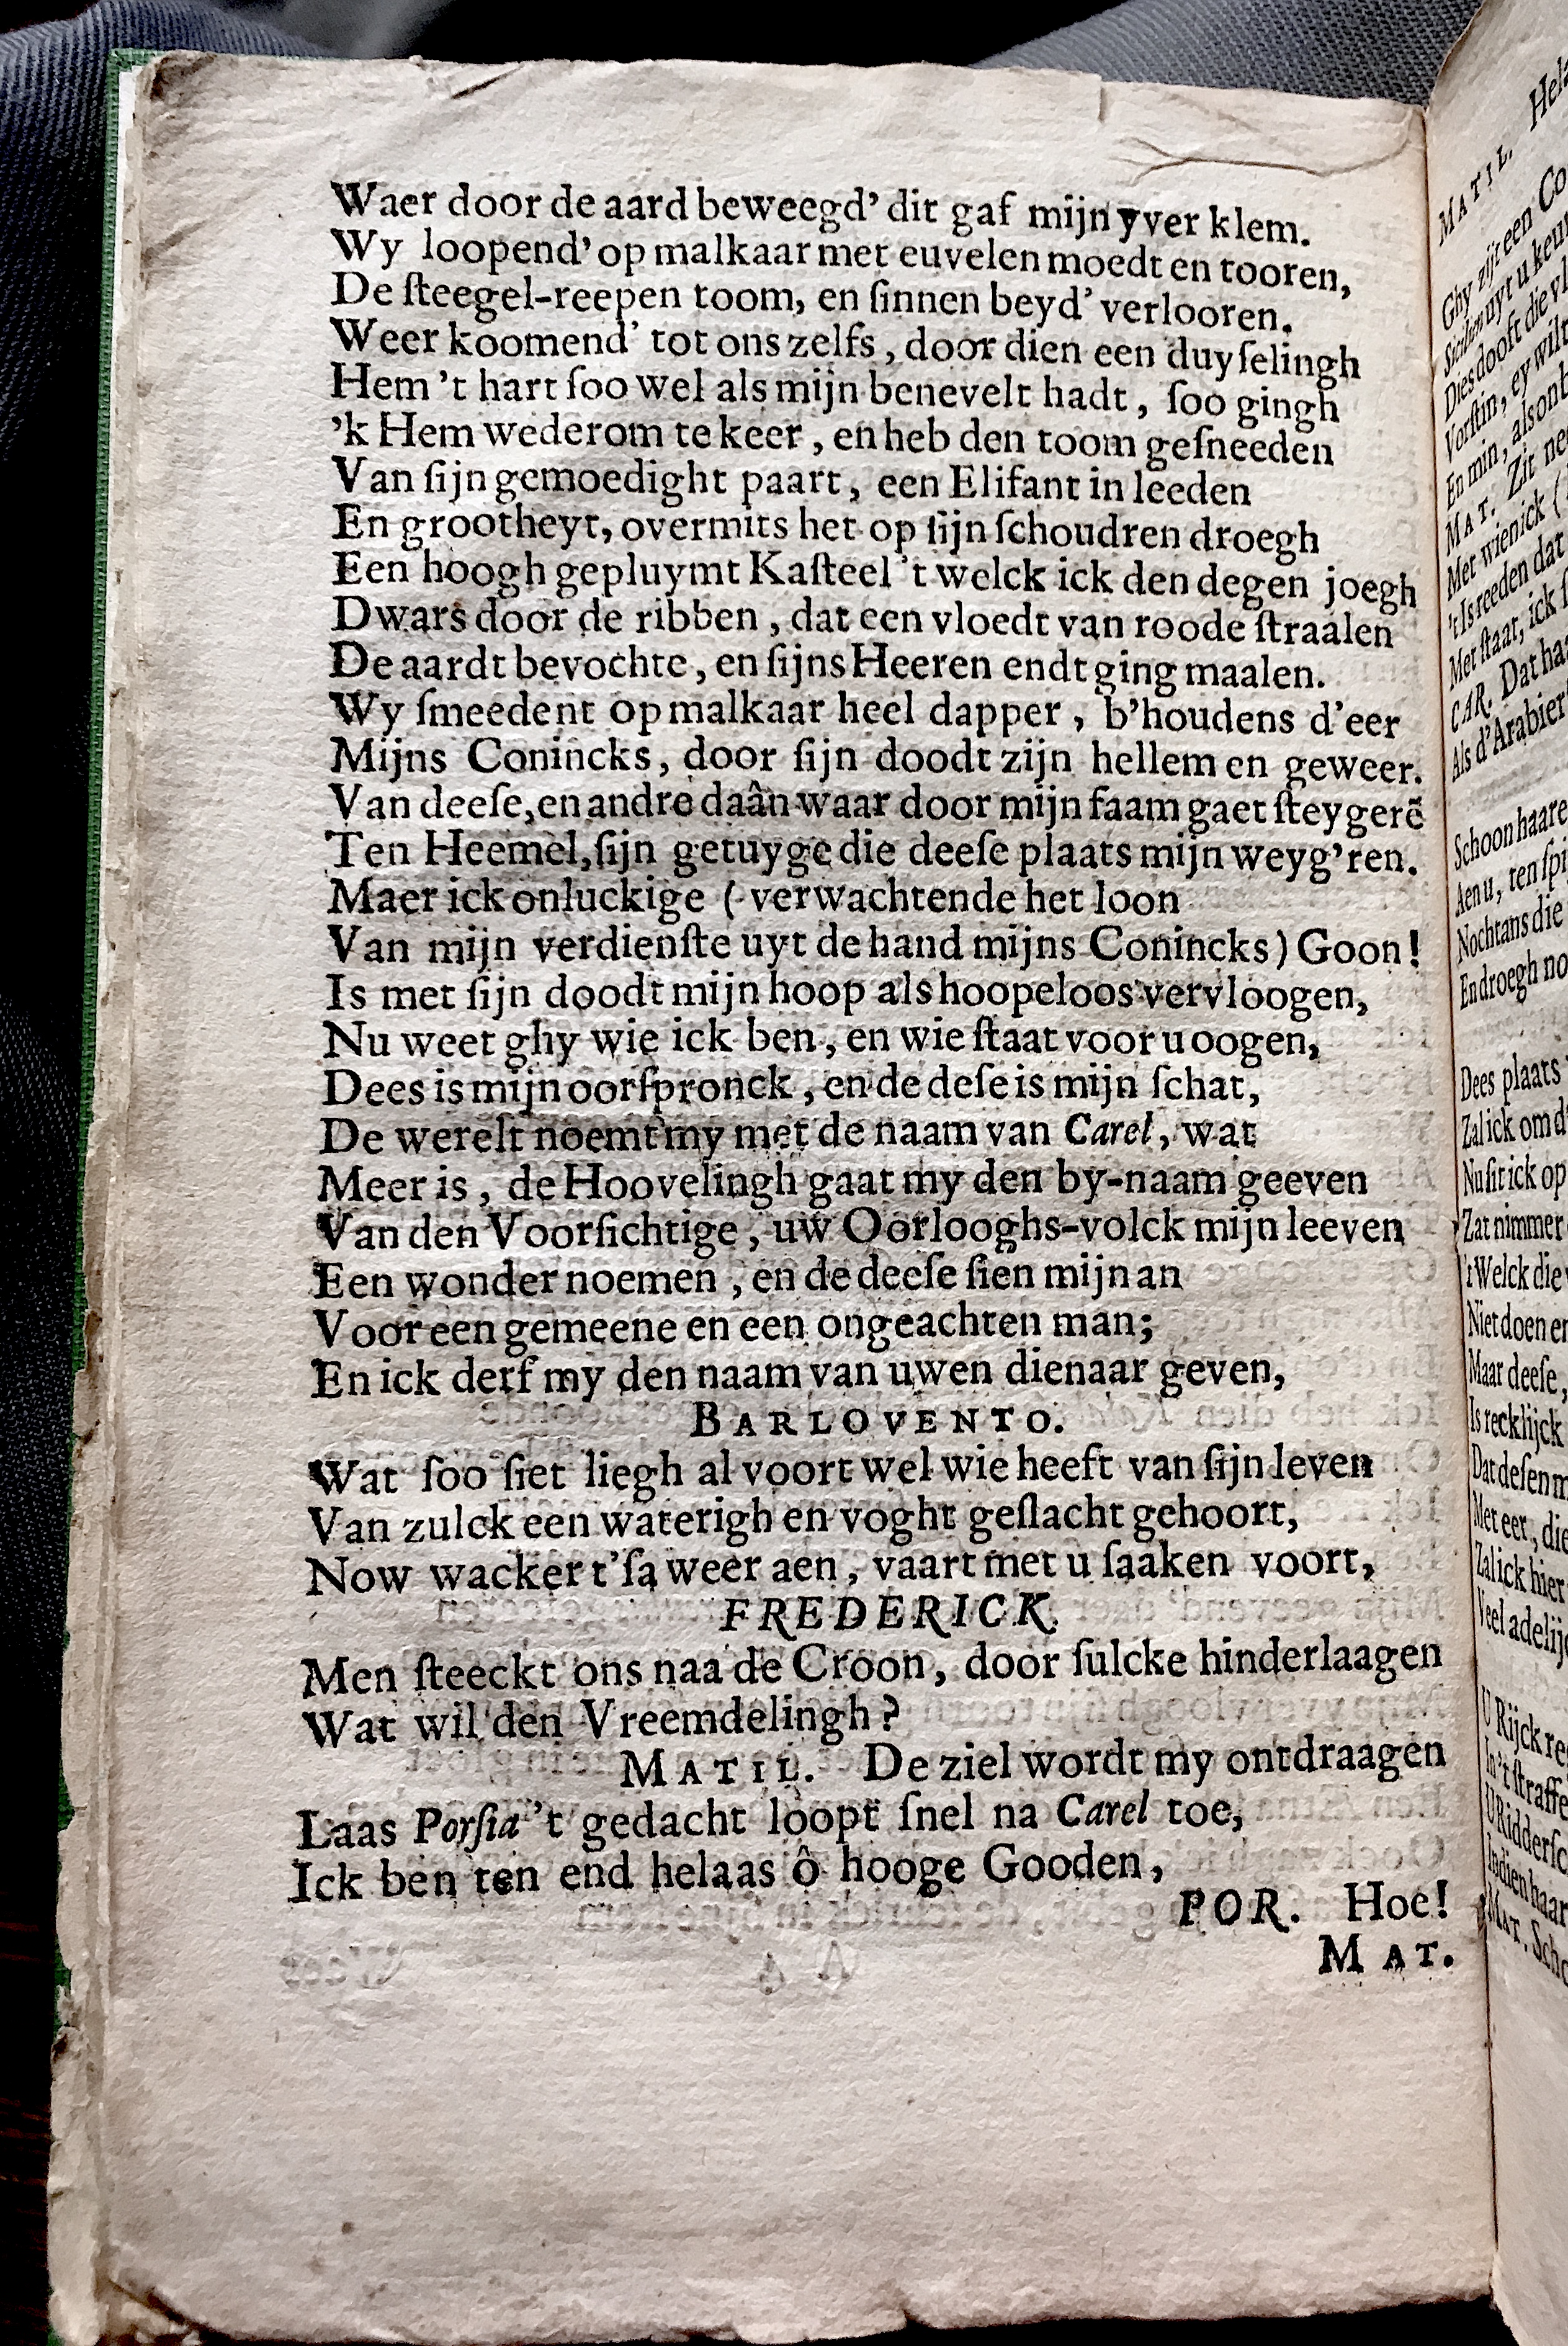 Waer door de aard beweegd' dit gaf mijn yver klem.
Wy loopend' op malkaar met euvelen moedt en tooren,
De ſteegel-reepen toom, en ſinnen beyd' verlooren.
Weer koomend' tot ons zelfs, door dien een duyſelingh
Hem 't hart ſoo wel als mijn benevelt hadt, ſoo gingh
'k Hem wederom te keer, en heb den toom geſneeden
Van ſijn gemoedight paart, een Elifant in leeden
En grootheyt, overmits het op ſijn ſchoudren droegh
Een hoogh gepluymt Kaſteel 't welck ick den degen joegh
Dwars door de ribben, dat een vloedt van roode ſtraalen
De aardt bevochte, en ſijns Heeren endt ging maalen.
Wy ſmeedent op malkaar heel dapper, b'houdens d'eer
Mijns Conincks, door ſijn doodt zijn hellem en geweer.
Van deeſe, en andre daân waar door mijn faam gaet ſteygerē
Ten Heemel, ſijn getuyge die deeſe plaats mijn weyg'ren.
Maer ick onluckige (verwachtende het loon
Van mijn verdienſte uyt de hand mijns Conincks) Goon!
Is met ſijn doodt mijn hoop als hoopeloos vervloogen,
Nu weet ghy wie ick ben, en wie ſtaat voor u oogen,
Dees is mijn oorſpronck, en de deſe is mijn ſchat,
De werelt noemt my met de naam van Carel, wat
Meer is, de Hoovelingh gaat my den by-naam geeven
Van den Voorſichtige, uw Oorlooghs-volck mijn leeven
Een wonder noemen, en de deeſe ſien mijn an
Voor een gemeene en een ongeachten man;
En ick derf my den naam van uwen dienaar geven,
BARLOVENTO.
Wat ſoo ſiet liegh al voort wel wie heeft van ſijn leven
Van zulck een waterigh en voght geſlacht gehoort,
Now wacker t'ſa weer aen, vaart met u ſaaken voort,
FREDERICK.
Men ſteeckt ons naa de Croon, door ſulcke hinderlaagen
Wat wil den Vreemdelingh?
MATIL. De ziel wordt my ontdraagen
Laas Porſia 't gedacht loopt ſnel na Carel toe,
Ick ben ten end helaas ô hooge Gooden,
POR. Hoe!
MAT.